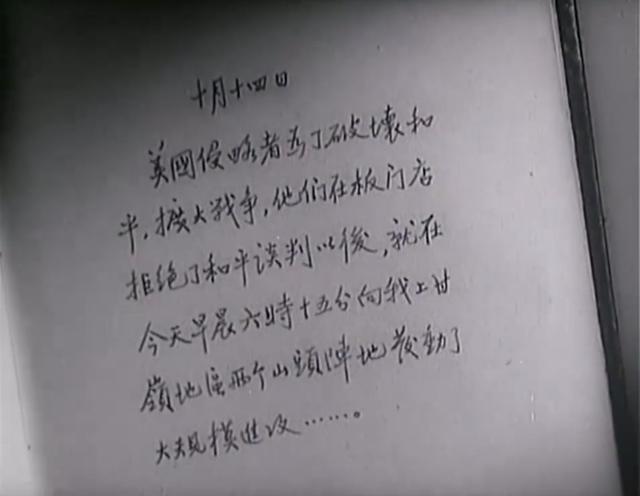 十月十四日
美國侵略者为了破壞和
平，擴大戰争，他们在板门店
拒绝了和平谈判以後，就在
今天早晨六时十五分向我上甘
嶺地區两个山頭陣地发動了
大规模進攻……。